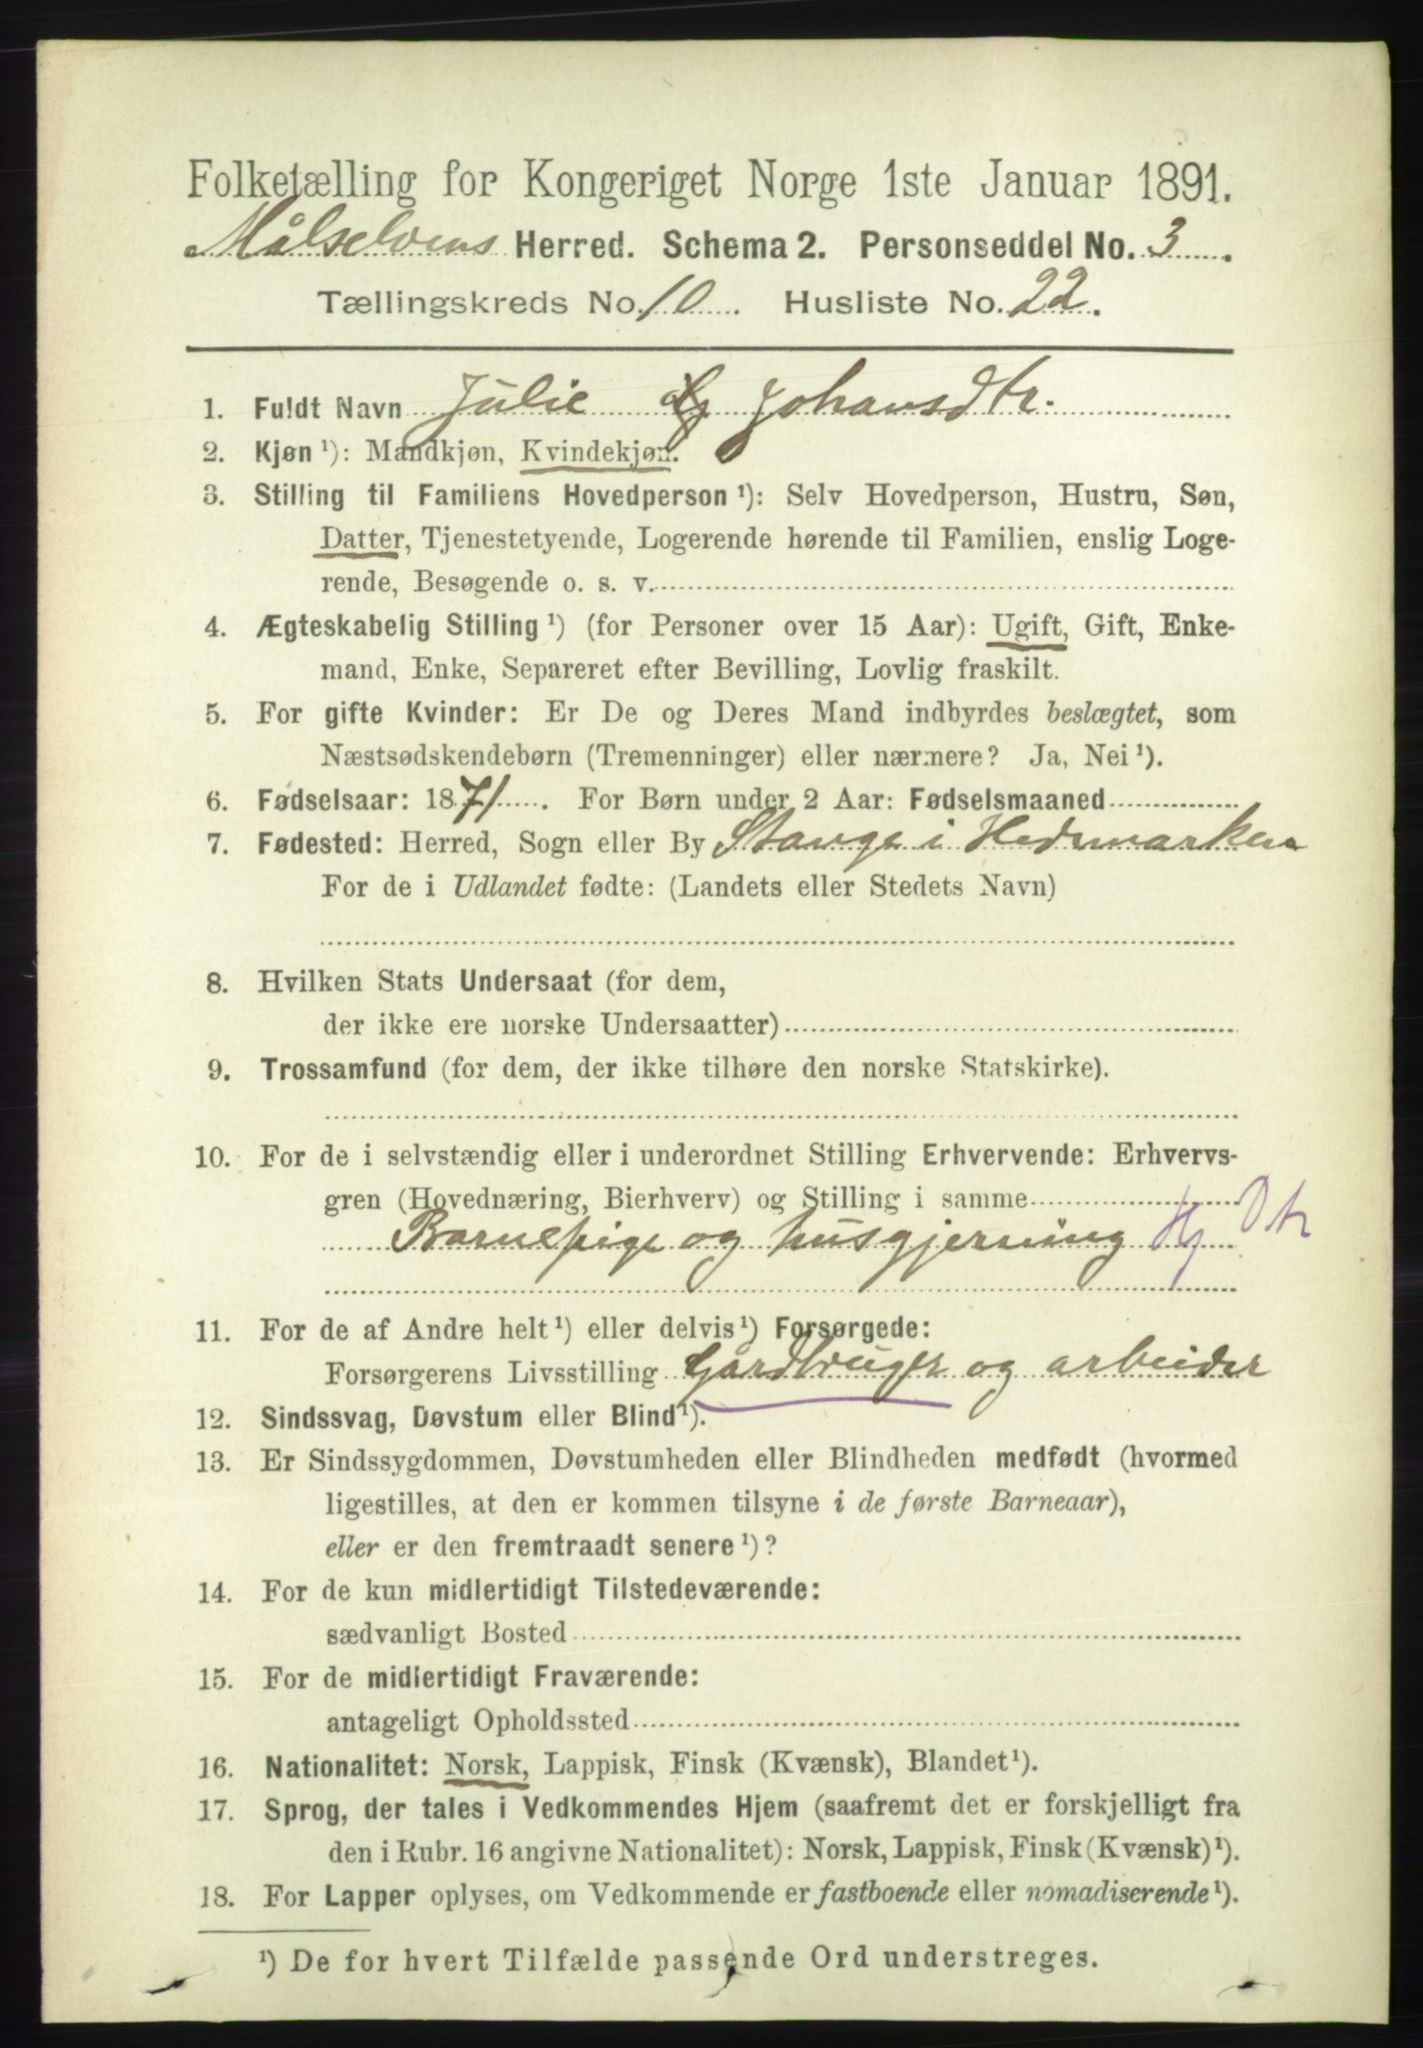 Folketælling for Kongeriget Norge 1ste Januar 1891.
Målselvens Herred. Schema 2. Personseddel No. 3.
Tællingskreds No. 10. Husliste No. 22.
1. Fuldt Navn Julie Johansdtr.
2. Kjøn ¹): Mandkjøn, Kvindekjøn.
3. Stilling til Familiens Hovedperson ¹): Selv Hovedperson, Hustru, Søn,
Datter, Tjenestetyende, Logerende hørende til Familien, enslig Loge-
rende, Besøgende o. s. v.
4. Ægteskabelig Stilling ¹) (for Personer over 15 Aar): Ugift, Gift, Enke-
mand, Enke, Separeret efter Bevilling, Lovlig fraskilt.
5. For gifte Kvinder: Er De og Deres Mand indbyrdes beslægtet, som
Næstsødskendebørn (Tremenninger) eller nærmere? Ja, Nei ¹).
6. Fødselsaar: 1871. For Børn under 2 Aar: Fødselsmaaned
7. Fødested: Herred, Sogn eller By Stange i Hedemarken
For de i Udlandet fødte: (Landets eller Stedets Navn)
8. Hvilken Stats Undersaat (for dem,
der ikke ere norske Undersaatter)
9. Trossamfund (for dem, der ikke tilhøre den norske Statskirke).
10. For de i selvstændig eller i underordnet Stilling Erhvervende: Erhvervs-
gren (Hovednæring, Bierhverv) og Stilling i samme
Barnepige og husgjerning Hj Dtr
11. For de af Andre helt ¹) eller delvis ¹) Forsørgede:
Forsørgerens Livsstilling Gårdbruger og arbeider
12. Sindssvag, Døvstum eller Blind ¹).
13. Er Sindssygdommen, Døvstumheden eller Blindheden medfødt (hvormed
ligestilles, at den er kommen tilsyne i de første Barneaar),
eller er den fremtraadt senere ¹)?
14. For de kun midlertidigt Tilstedeværende:
sædvanligt Bosted
15. For de midlertidigt Fraværende:
antageligt Opholdssted
16. Nationalitet: Norsk, Lappisk, Finsk (Kvænsk), Blandet ¹).
17. Sprog, der tales i Vedkommendes Hjem (saafremt det er forskjelligt fra
den i Rubr. 16 angivne Nationalitet): Norsk, Lappisk, Finsk (Kvænsk) ¹).
18. For Lapper oplyses, om Vedkommende er fastboende eller nomadiserende ¹).
¹) De for hvert Tilfælde passende Ord understreges.